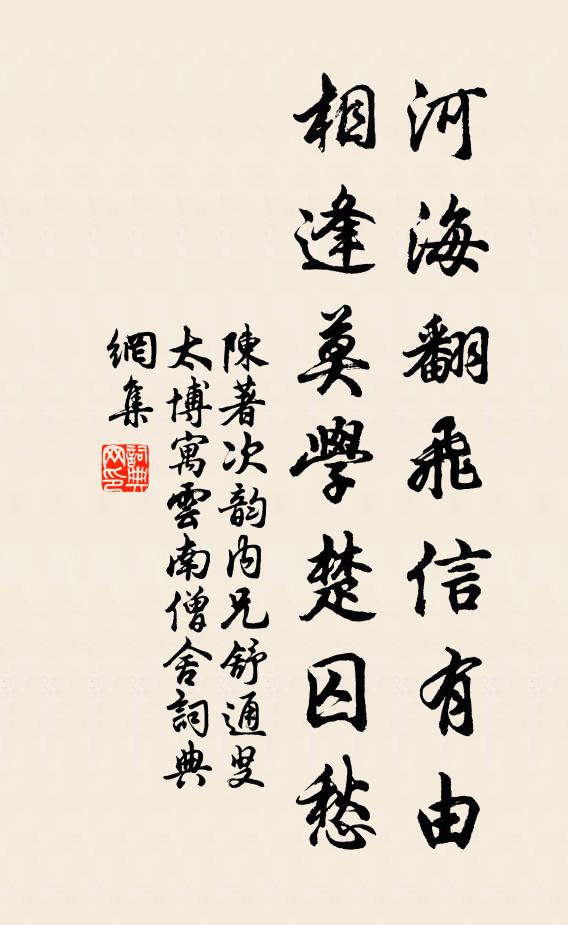 河海翻飛信有由
相逢莫學楚囚愁
陳著次韵内兄舒通叟
太博寓雲南僧舍詞典
網集
詞典
网印